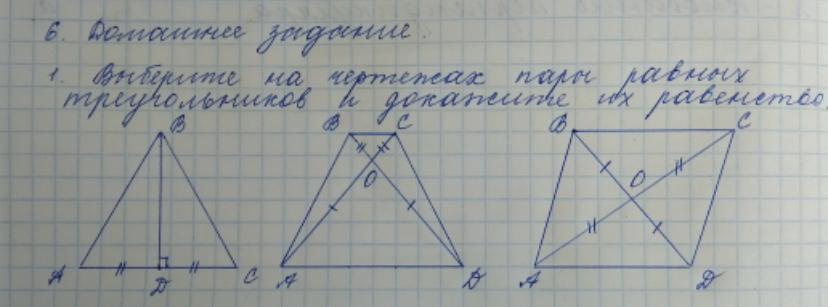 6. Домашнее задание.
1. Выберите на чертежах пары равных
треугольников и докажите их равенство.
B B C B C
O O
A D C A D A D